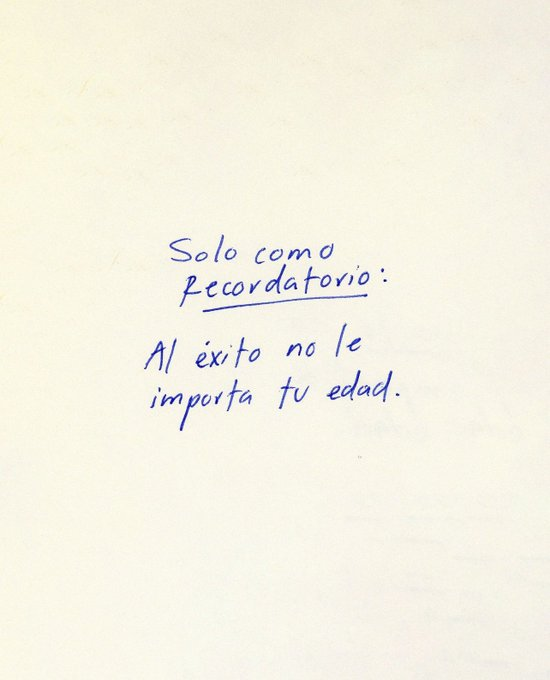 Solo como
Recordatorio:
Al éxito no le
importa tu edad.